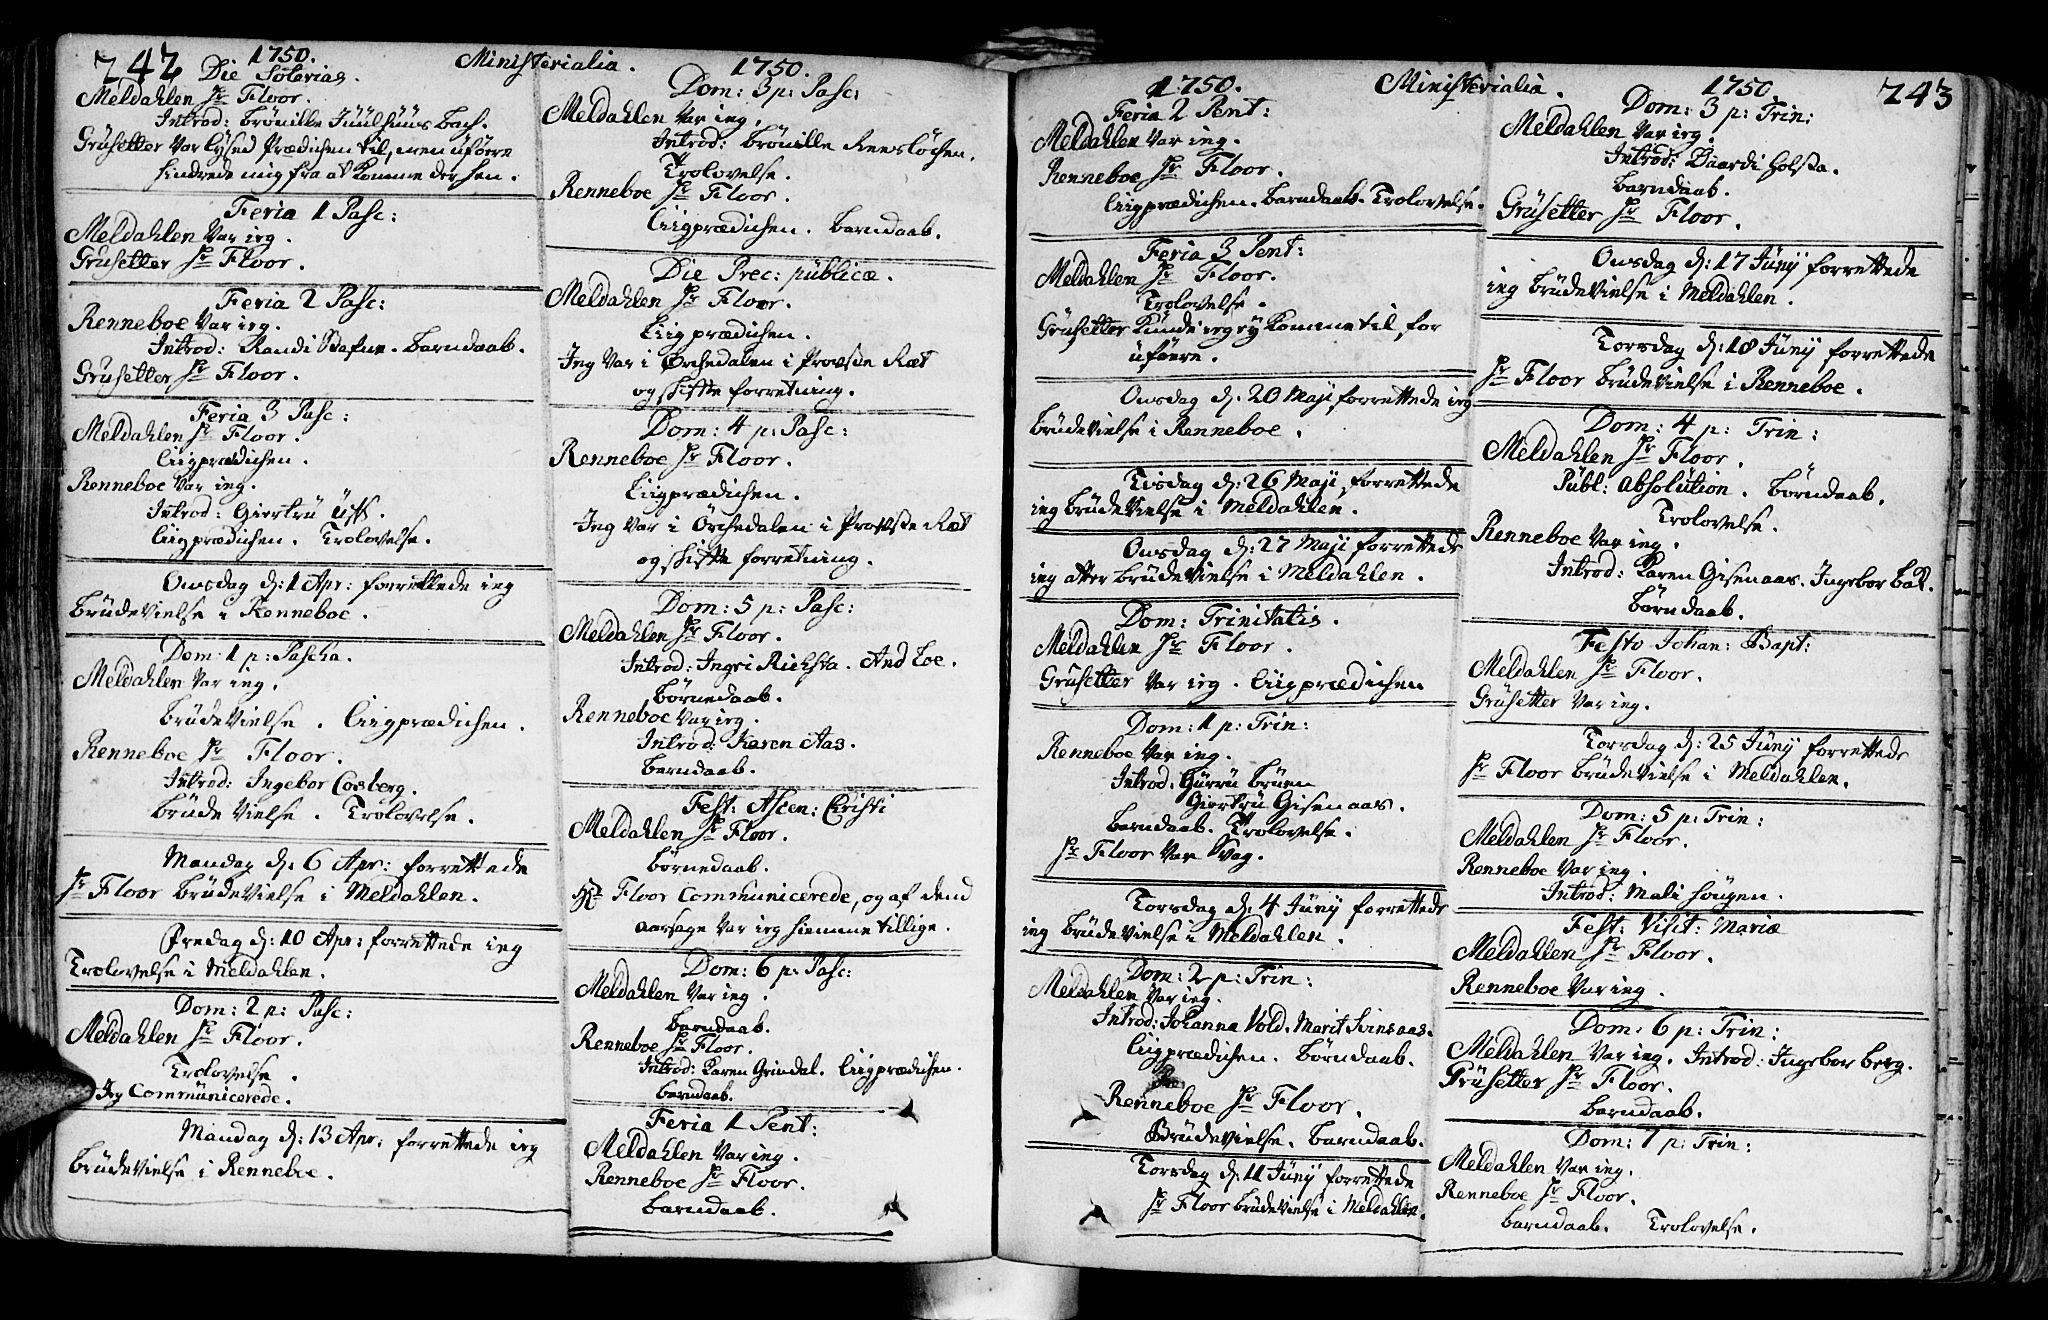 742
1750.
Ministerialia.
1750.
Die
Meldahlen Hr Floor.
Introd: Brönille Juulhuus Bach.
Grusetter var lysed Prædichen til, men uføere
hindrede mig fra at komme der hen.
Feria 1 Pasc:
Meldahlen var ieg.
Grusetter Hr Floor.
Feria 2 Pasc:
Renneboe var ieg.
Introd: Randi Barndaab.
Grusetter Hr Floor.
Feria 3 Pasc:
Meldahlen Hr Floor.
Liigprædichen.
Renneboe var ieg.
Introd: Giertru Uff.
Liigprædichen. Trolovelse.
Onsdag d: 1 Apr: forrettede ieg
Brudevielse i Renneboe.
Dom: 1 p: Pascha.
Meldahlen var ieg.
Brudevielse. Liigprædichen.
Renneboe Hr Floor.
Introd: Ingebor Cosberg.
Brudevielse. Trolovelse.
Mandag d: 6 Apr: forrettede
Hr Floor Brudevielse i Meldahlen.
Fredag d: 10 Apr: forrettede ieg
Trolovelse i Meldahlen.
Dom: 2 p: Pasc:
Meldahlen Hr Floor.
Trolovelse.
Jeg Communicerede.
Mandag d: 13 Apr: forrettede ieg
Brudevielse i Renneboe.
Dom: 3 p: Pasc:
Meldahlen var ieg.
Introd: Brönille
Trolovelse.
Renneboe Hr Floor.
Liigprædichen. Barndaab.
Die Prec: publicæ.
Meldahlen Hr Floor.
Liigprædichen.
Jeg var i Örchedalen i Provste Ræt
og skifte forretning.
Dom: 4 p: Pasc:
Renneboe Hr Floor.
Liigprædichen.
Jeg var i Örchedalen i Provste Ræt
og skifte forretning.
Dom: 5 p: Pasc:
Meldahlen Hr Floor.
Introd: Ingri Richsta. And Loe.
Börnedaab.
Renneboe var ieg.
Introd: Karen Aas.
Barndaab.
Fest: Ascen: Christi
Meldahlen Hr Floor.
Börnedaab.
Hr Floor Communicerede, og af dend
aarsage var ieg hiemme tillige.
Dom: 6 p: Pasc:
Meldahlen var ieg.
Barndaab.
Renneboe Hr Floor.
Introd: Karen Grindal. Liigprædichen.
Barndaab.
Feria 1 Pent:
Meldahlen var ieg.
Renneboe Hr Floor.
Barndaab.
1750.
Ministerialia.
1750.
743
Feria 2 Pent:
Meldahlen var ieg.
Renneboe Hr Floor.
Liigprædichen. Barndaab. Trolovelse.
Feria 3 Pent:
Meldahlen Hr Floor.
Trolovelse.
Grusetter kunde ieg ey komme til, for
uføere.
Onsdag d: 20 Maji forrettede ieg
Brudevielse i Renneboe.
Tisdag d: 26 Maji forrettede
ieg Brudevielse i Meldahlen.
Onsdag d: 27 Maji forrettede
ieg atter Brudevielse i Meldahlen.
Dom: Trinitatis.
Meldahlen Hr Floor.
Grusetter var ieg. Liigprædichen
Dom: 1 p: Trin:
Renneboe var ieg.
Introd: Gurru Bruen
Giertru Gisenaas.
Barndaab. Trolovelse.
Hr Floor var svag.
Torsdag d: 4 Juny forrettede
ieg Brudevielse i Meldahlen.
Dom: 2 p: Trin:
Meldahlen var ieg.
Introd: Johanna Vold. Marit Svinsaas.
Liigprædichen. Börndaab.
Renneboe Hr Floor.
Brudevielse. Barndaab.
Torsdag d: 11 Juny forrettede
Hr Floor Brudevielse i Meldahlen.
Dom: 3 p: Trin:
Meldahlen var ieg
Introd: Baardi Holsta.
Barndaab.
Grusetter Hr Floor.
Onsdag d: 17 Juny forrettede
ieg Brudevielse i Meldahlen.
Torsdag d: 18 Juny forrettede
Hr Floor Brudevielse i Renneboe.
Dom: 4 p: Trin:
Meldahlen Hr Floor.
Publ: Absolution. Börndaab.
Trolovelse.
Renneboe var ieg.
Introd: Karen Gisenaas. Ingebor Bak.
Börndaab.
Festo Johan: Bapt:
Meldahlen Hr Floor.
Grusetter var ieg.
Torsdag d: 25 Juny forrettede
Hr Floor Brudevielse i Meldahlen.
Dom: 5 p: Trin:
Meldahlen Hr Floor.
Renneboe var ieg.
Introd: Mali Hougen.
Fest: Visit: Mariæ
Meldahlen Hr Floor.
Renneboe var ieg.
Dom: 6 p: Trin:
Meldahlen var ieg. Introd: Ingebor Berg.
Grusetter Hr Floor.
Barndaab.
Dom: 7 p: Trin:
Meldahlen var ieg.
Renneboe Hr Floor.
Barndaab. Trolovelse.